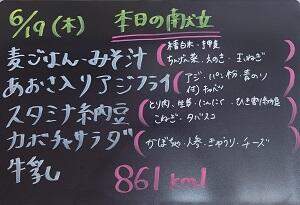 6/19(木) 本日の献立
麦ごはん・みそ汁(精白米・押麦 ちんげん菜・えのき・玉ねぎ)
あおさ入りアジフライ(アジ・パン粉・青のり 付)キャベツ
スタミナ納豆(とり肉・生姜・にんにく・ひき割納豆 こねぎ・タバスコ)
カボチャサラダ(かぼちゃ・人参・きゅうり・チーズ)
牛乳 861 kcal